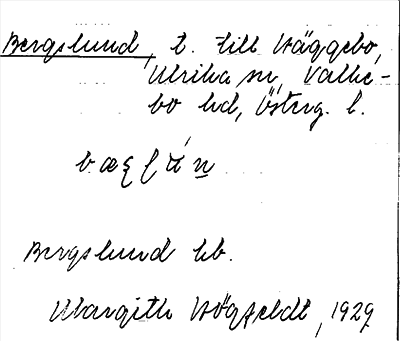 Bergslund, t. till Häggebo,
Ulrika sn, Valke-
bo hd, Österg. l.
Bergslund hb.
Margith Högfeldt, 1929